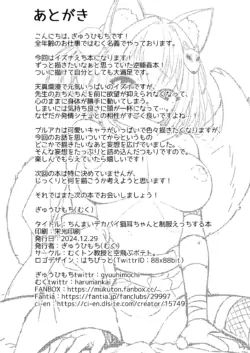 あとがき
こんにちは、ぎゅうひもちです!
全年齢のお仕事ではむく名義でやっております。
今回はイズナえち本になります!
ずっと描きたいなぁと思っていた逆睡姦本!
ついに描けて自分としても大満足です。
天真爛漫で元気いっぱいのイズナですが、
先生のおちんちんを前に欲望が抑えられなくなって、
心のままに身体が勝手に動いてしまう。
しまいには気持ち良さに頭が一杯になって…。
なぜだか発情シチュとの相性がすごく良いですよね。
ブルアカは可愛いキャラがいっぱいで色々描きたくなりますが、
今回のお話を描いてつつからというもの
どこかで描きたいなぁと妄想を広げていました。
そんな妄想をたっぷりと詰め込んだつもりですので、
楽しんでもらえていたら嬉しいです!
次回の本は特に決めていませんが、
じっくりと何を描こうか考えようと思います!
それではまた次の本でお会いしましょう!
ぎゅうひもち(むく)
タイトル:ちんまいデカパイ猫耳ちゃんと制服えっちする本
印刷:栄光印刷
発行日:2024.12.29
発行者:ぎゅうひもち(むく)
サークル:むくトン教授と空飛ぶポテト。
ロゴデザイン:はちぱっと(TwitterID:88x88bit)
ぎゅうひもちtwittr:gyuuhimochi
むくtwittr:harumiankai
FANBOX:https://mukuton.fanbox.cc/
Fantia:https://fantia.jp/fanclubs/29997
ci-en:https://ci-en.dlsite.com/creator/15749